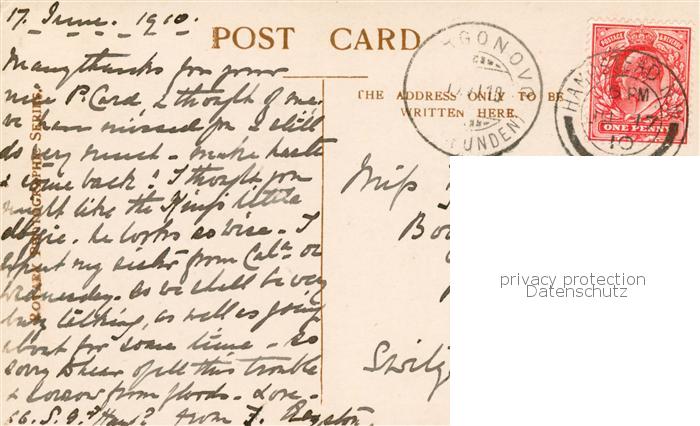 17. June. 1910.
POST CARD
THE ADDRESS ONLY TO BE
WRITTEN HERE.
ROTARY PHOTOGRAPHIC SERIES.
Many thanks for your
nice P. Card & thought of me.
We have missed you & still
do very much - make haste
& come back! I thought you
might like the King's little
dogie. he looks so wise - I
expect my sister from Cala on
Wednesday. So we shall be very
busy talking, as well as going
about for some time - So
sorry to hear of all this trouble
& sorrow from floods. - Love -
from F. Royston.
Miss
Bo
Switz
RGONOVO
HAMPSTEAD
PM
10
POSTAGE & REVENUE
ONE PENNY
privacy protection
Datenschutz